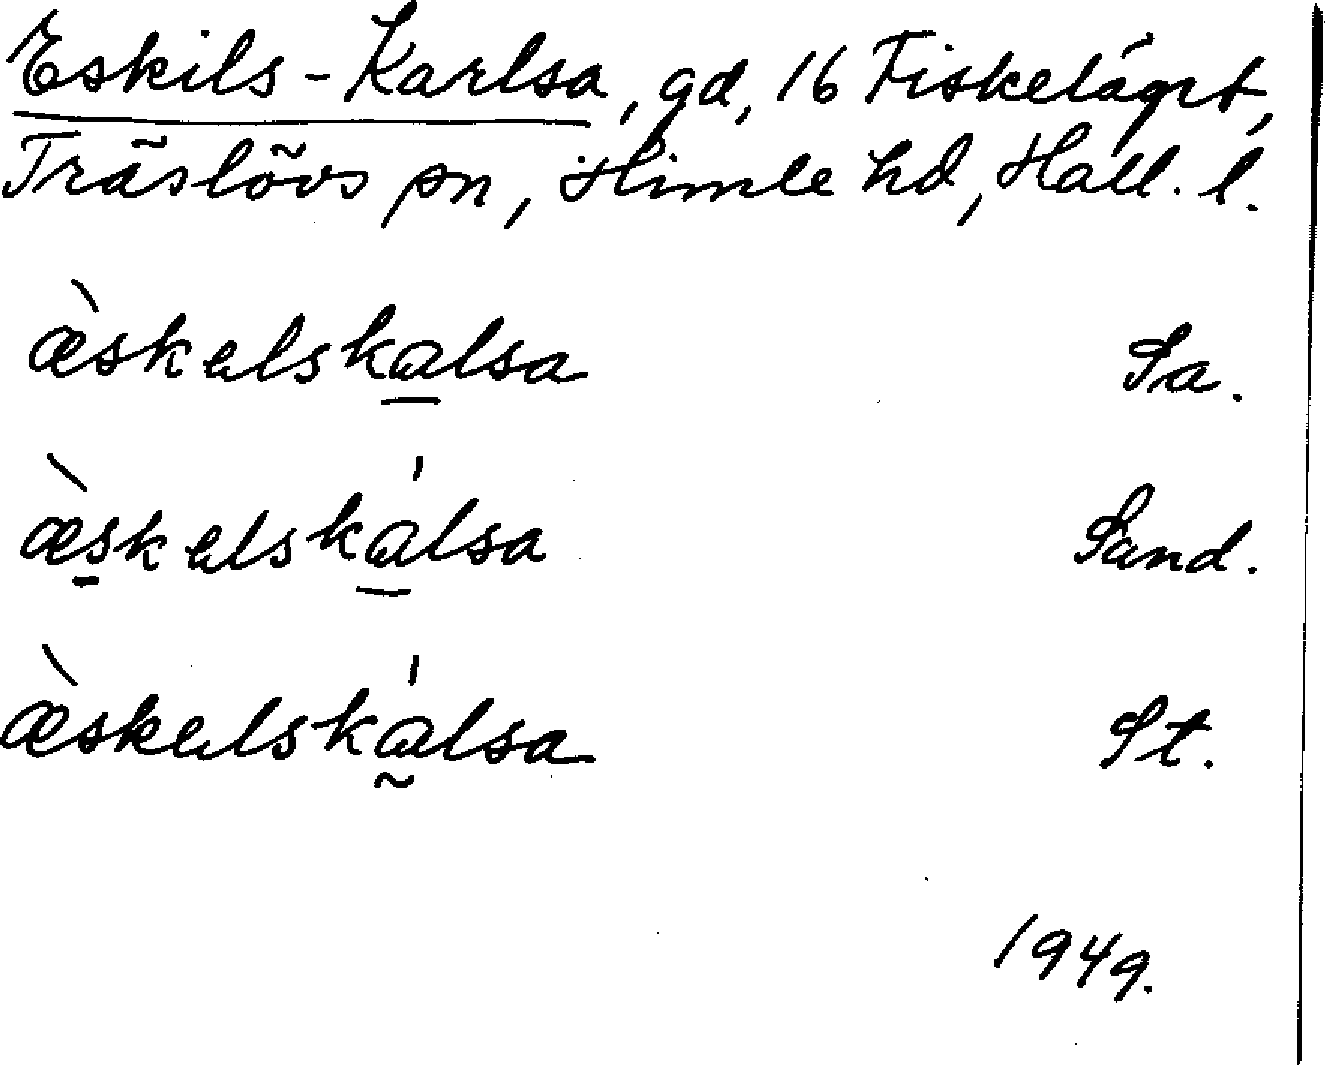 Eskils-Karlsa, gd, 16 Fiskeläget,
Träslövs sn, Himle hd, Hall. l.
æ̀skelskalsa Sa.
æ̀skelskálsa Sand.
æ̀skelskálsa St.
1949.